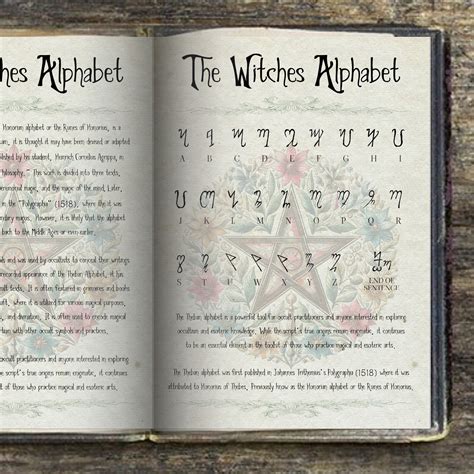 hes Alphabet
Honorian alphabet or the Runes of Honorius, is a
it is thought it may have been devised or adapted
by his student, Heinrich Cornelius Agrippa, in
This work is divided into three texts,
ceremonial magic, and the magic of the mind. Later,
in the "Polygraphia" (1518), where it is was
magus. However, it is likely that the alphabet
back to the Middle Ages or even earlier.
and was used by occultists to conceal their writings
recorded appearance of the Theban Alphabet, it has
It is often featured in grimoires and books
where it is utilized for various magical purposes,
and divination. It is often used to create magical
with other occult symbols and practices.
practitioners and anyone interested in exploring
script's true origins remain enigmatic, it continues
who practice magical and esoteric arts.
The Witches Alphabet
A B C D E F G H
K L M N O P Q R
S T
END OF
SENTENCE
The Theban alphabet is a powerful tool for occult practitioners and anyone interested in exploring
occultism and esoteric knowledge. While the script's true origins remain enigmatic, it continues
to be an essential element in the toolkit of those who practice magical and esoteric arts.
The Theban alphabet was first published in Johannes Trithemius's Polygraphia (1518) where it was
attributed to Honorius of Thebes. Previously know as the Honorian alphabet or the Runes of Honorius.